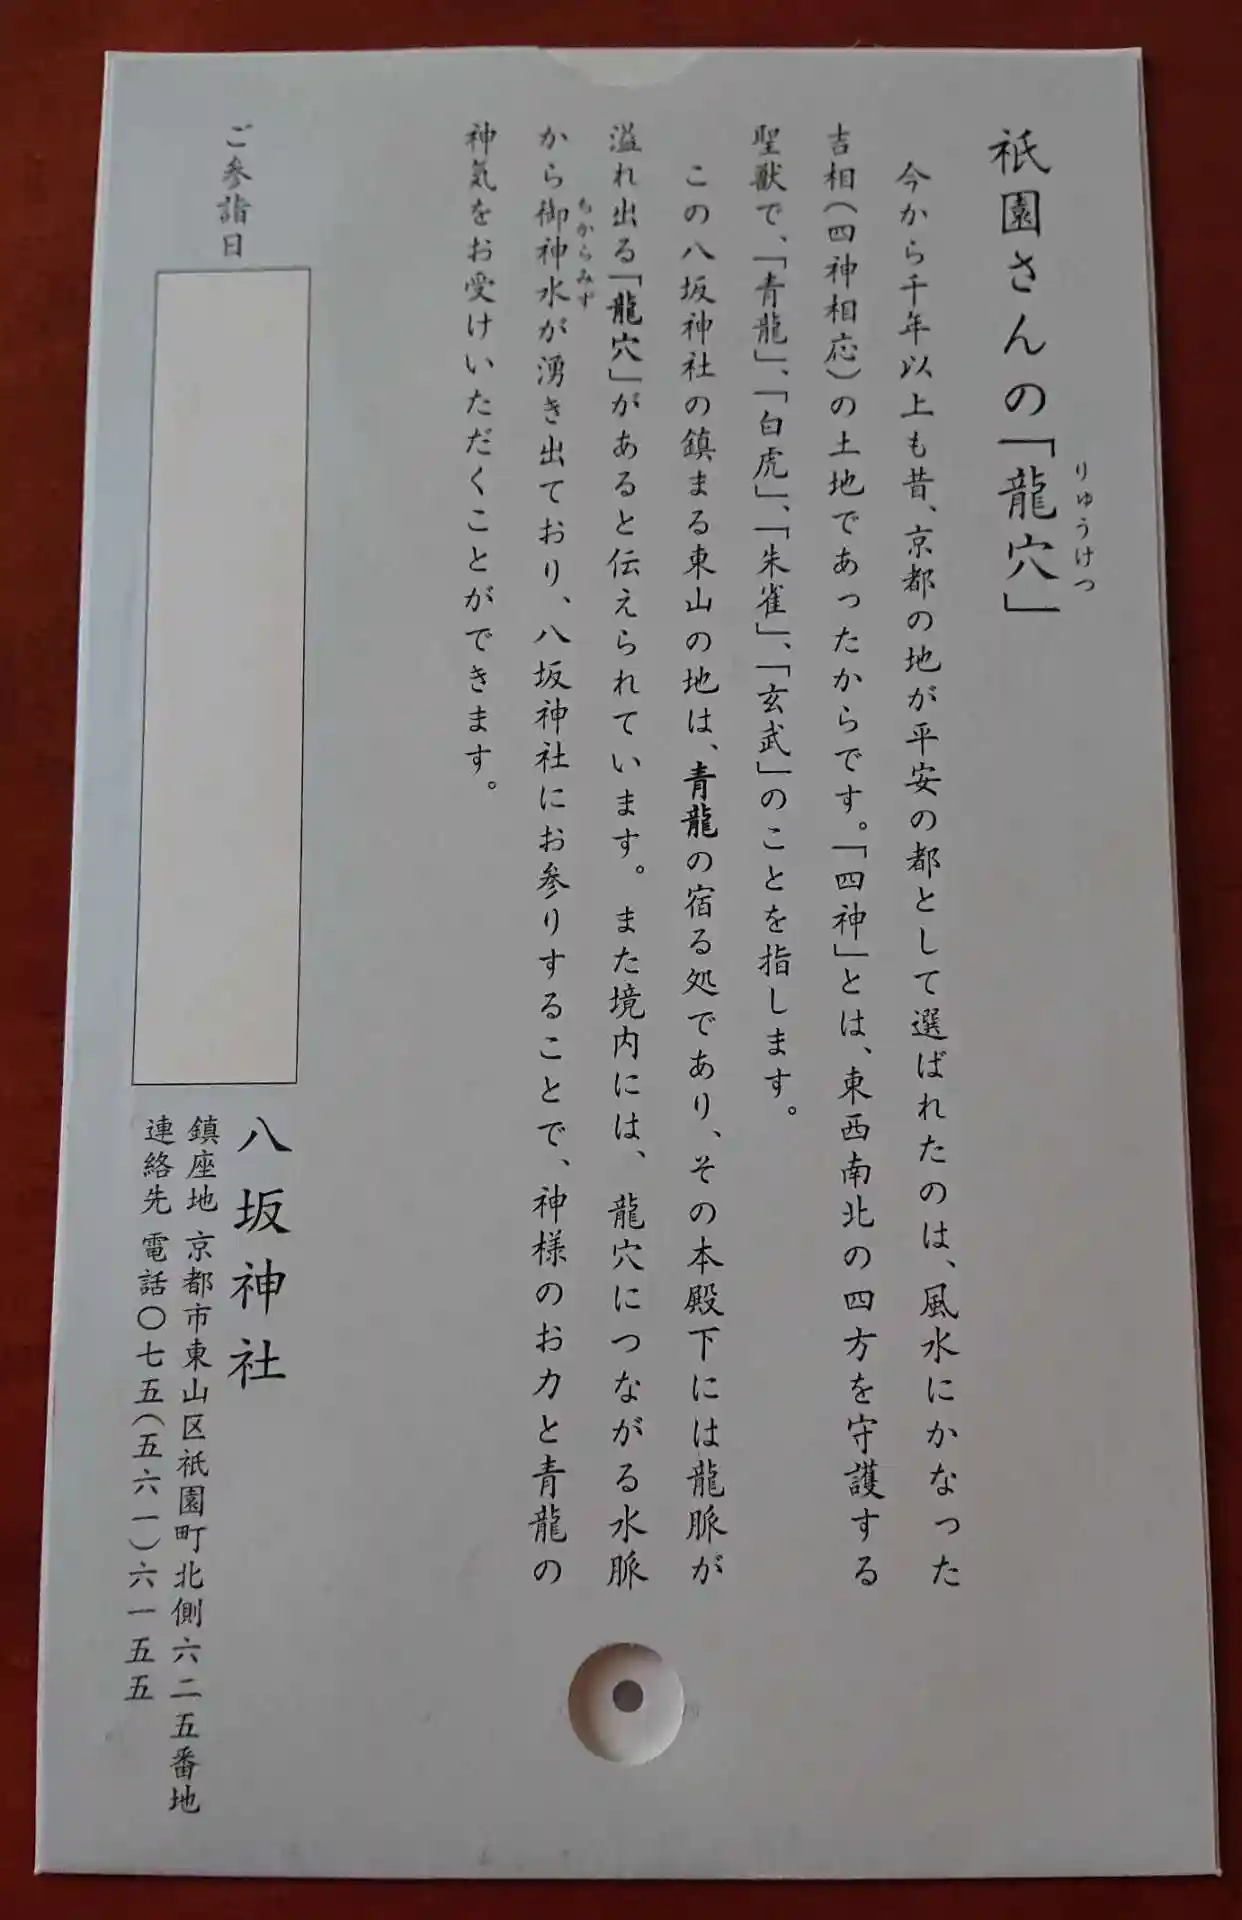 祇園さんの「龍穴」
りゅうけつ
今から千年以上も昔、京都の地が平安の都として選ばれたのは、風水にかなった
吉相（四神相応）の土地であったからです。「四神」とは、東西南北の四方を守護する
聖獣で、「青龍」、「白虎」、「朱雀」、「玄武」のことを指します。
この八坂神社の鎮まる東山の地は、青龍の宿る処であり、その本殿下には龍脈が
溢れ出る「龍穴」があると伝えられています。また境内には、龍穴につながる水脈
ちからみず
から御神水が湧き出ており、八坂神社にお参りすることで、神様のお力と青龍の
神気をお受けいただくことができます。
ご参詣日
八坂神社
鎮座地 京都市東山区祇園町北側六二五番地
連絡先 電話〇七五（五六一）六一五五